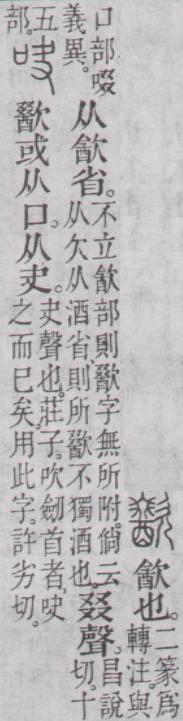 歠 㱃也。二篆爲轉注。與
口部啜義異。从㱃省。不立㱃部則歠字無所附。倘云从欠从酒省、則所歠不獨酒也。叕聲。昌說切。十
五部。吷 歠或从口。从夬。夬聲也。莊子。吹劒首者、吷之而已矣。用此字。許劣切。